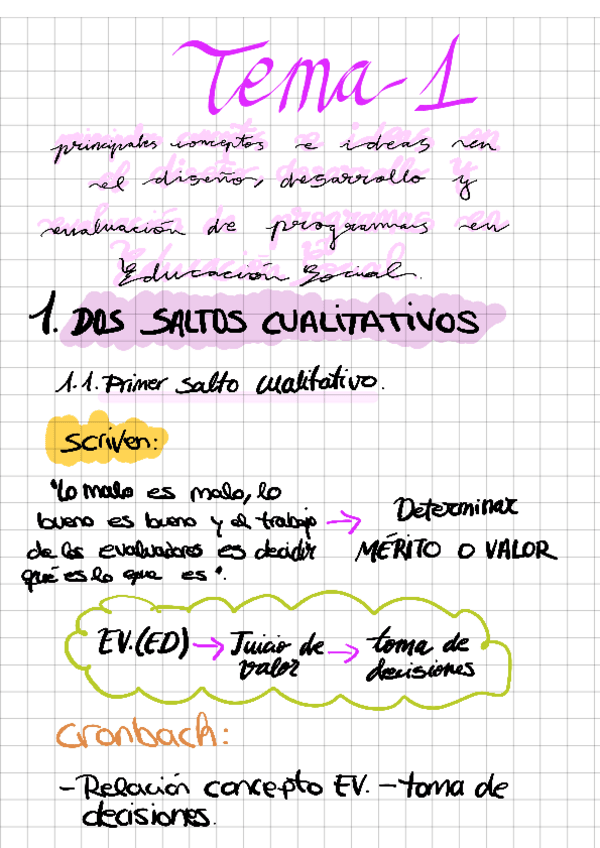 Tema-1
principales conceptos e ideas en
el diseño, desarrollo y
evaluación de programas en
Educación Social.
1. DOS SALTOS CUALITATIVOS
1.1. Primer salto cualitativo.
Scriven:
"Lo malo es malo, lo
bueno es bueno y el trabajo → Determinar
de los evaluadores es decidir MÉRITO O VALOR
qué es lo que es".
EV.(ED) → Juicio de → toma de
valor decisiones
Cronbach:
- Relación concepto EV. - toma de
decisiones.